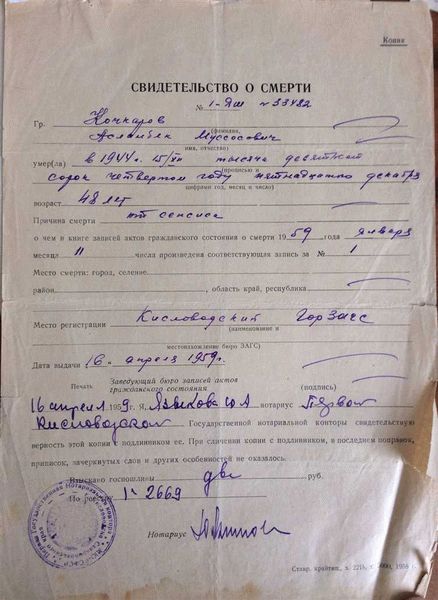 Копия
СВИДЕТЕЛЬСТВО О СМЕРТИ
№ 1-ЯШ № 33482
Гр. Кочкаров
(фамилия,
Асланбек Муссосович
имя, отчество)
умер(ла) в 1944 г. 15/XII тысяча девятьсот
(прописью и
сорок четвертом году пятнадцатго декабря
цифрами год, месяц и число)
возраст 48 лет
Причина смерти от сепсиса
о чем в книге записей актов гражданского состояния о смерти 1959 года января
месяца 11 числа произведена соответствующая запись за № 1
Место смерти: город, селение
район, область край, республика
Место регистрации Кисловодский ГорЗагс
(наименование и
местонахождение бюро ЗАГС)
Дата выдачи 16 апреля 1959 г.
Заведующий бюро записей актов
Печать гражданского состояния (подпись)
16 апреля 1959 г. Я, нотариус Первой
Кисловодской Государственной нотариальной конторы свидетельствую
верность этой копии с подлинником ее. При сличении копии с подлинником, в последнем поправок,
приписок, зачеркнутых слов и других особенностей не оказалось.
Взыскано госпошлины две руб.
По реестру 1-2669
Нотариус
Ставр. крайтип., з. 1958 г.